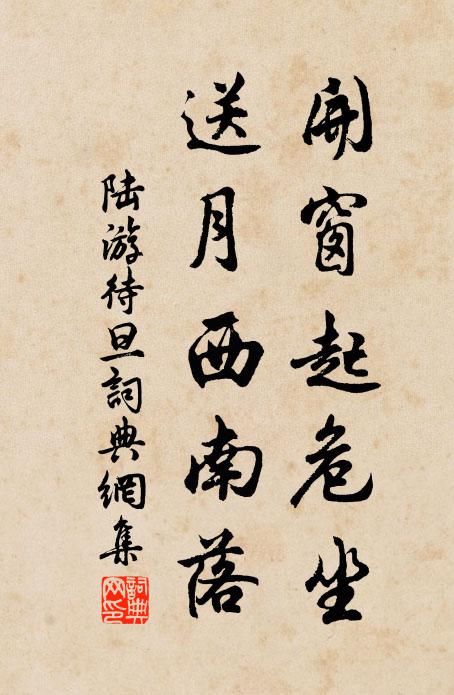 開窗起危坐
送月西南落
陸游待旦詞典網集
詞典网印